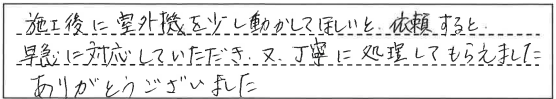 施工後に室外機を少し動かしてほしいと、依頼すると、
早急に対応していただき、又、丁寧に処理してもらえました
ありがとうございました